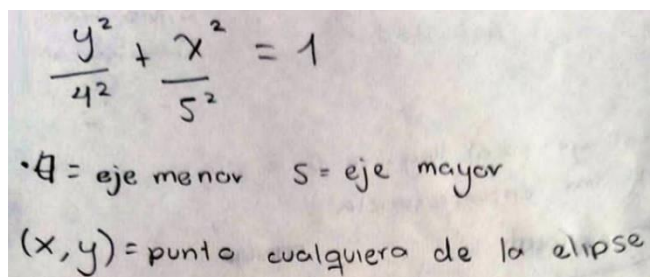 y²/4² + x²/5² = 1
·4 = eje menor 5 = eje mayor
(x, y) = punto cualquiera de la elipse